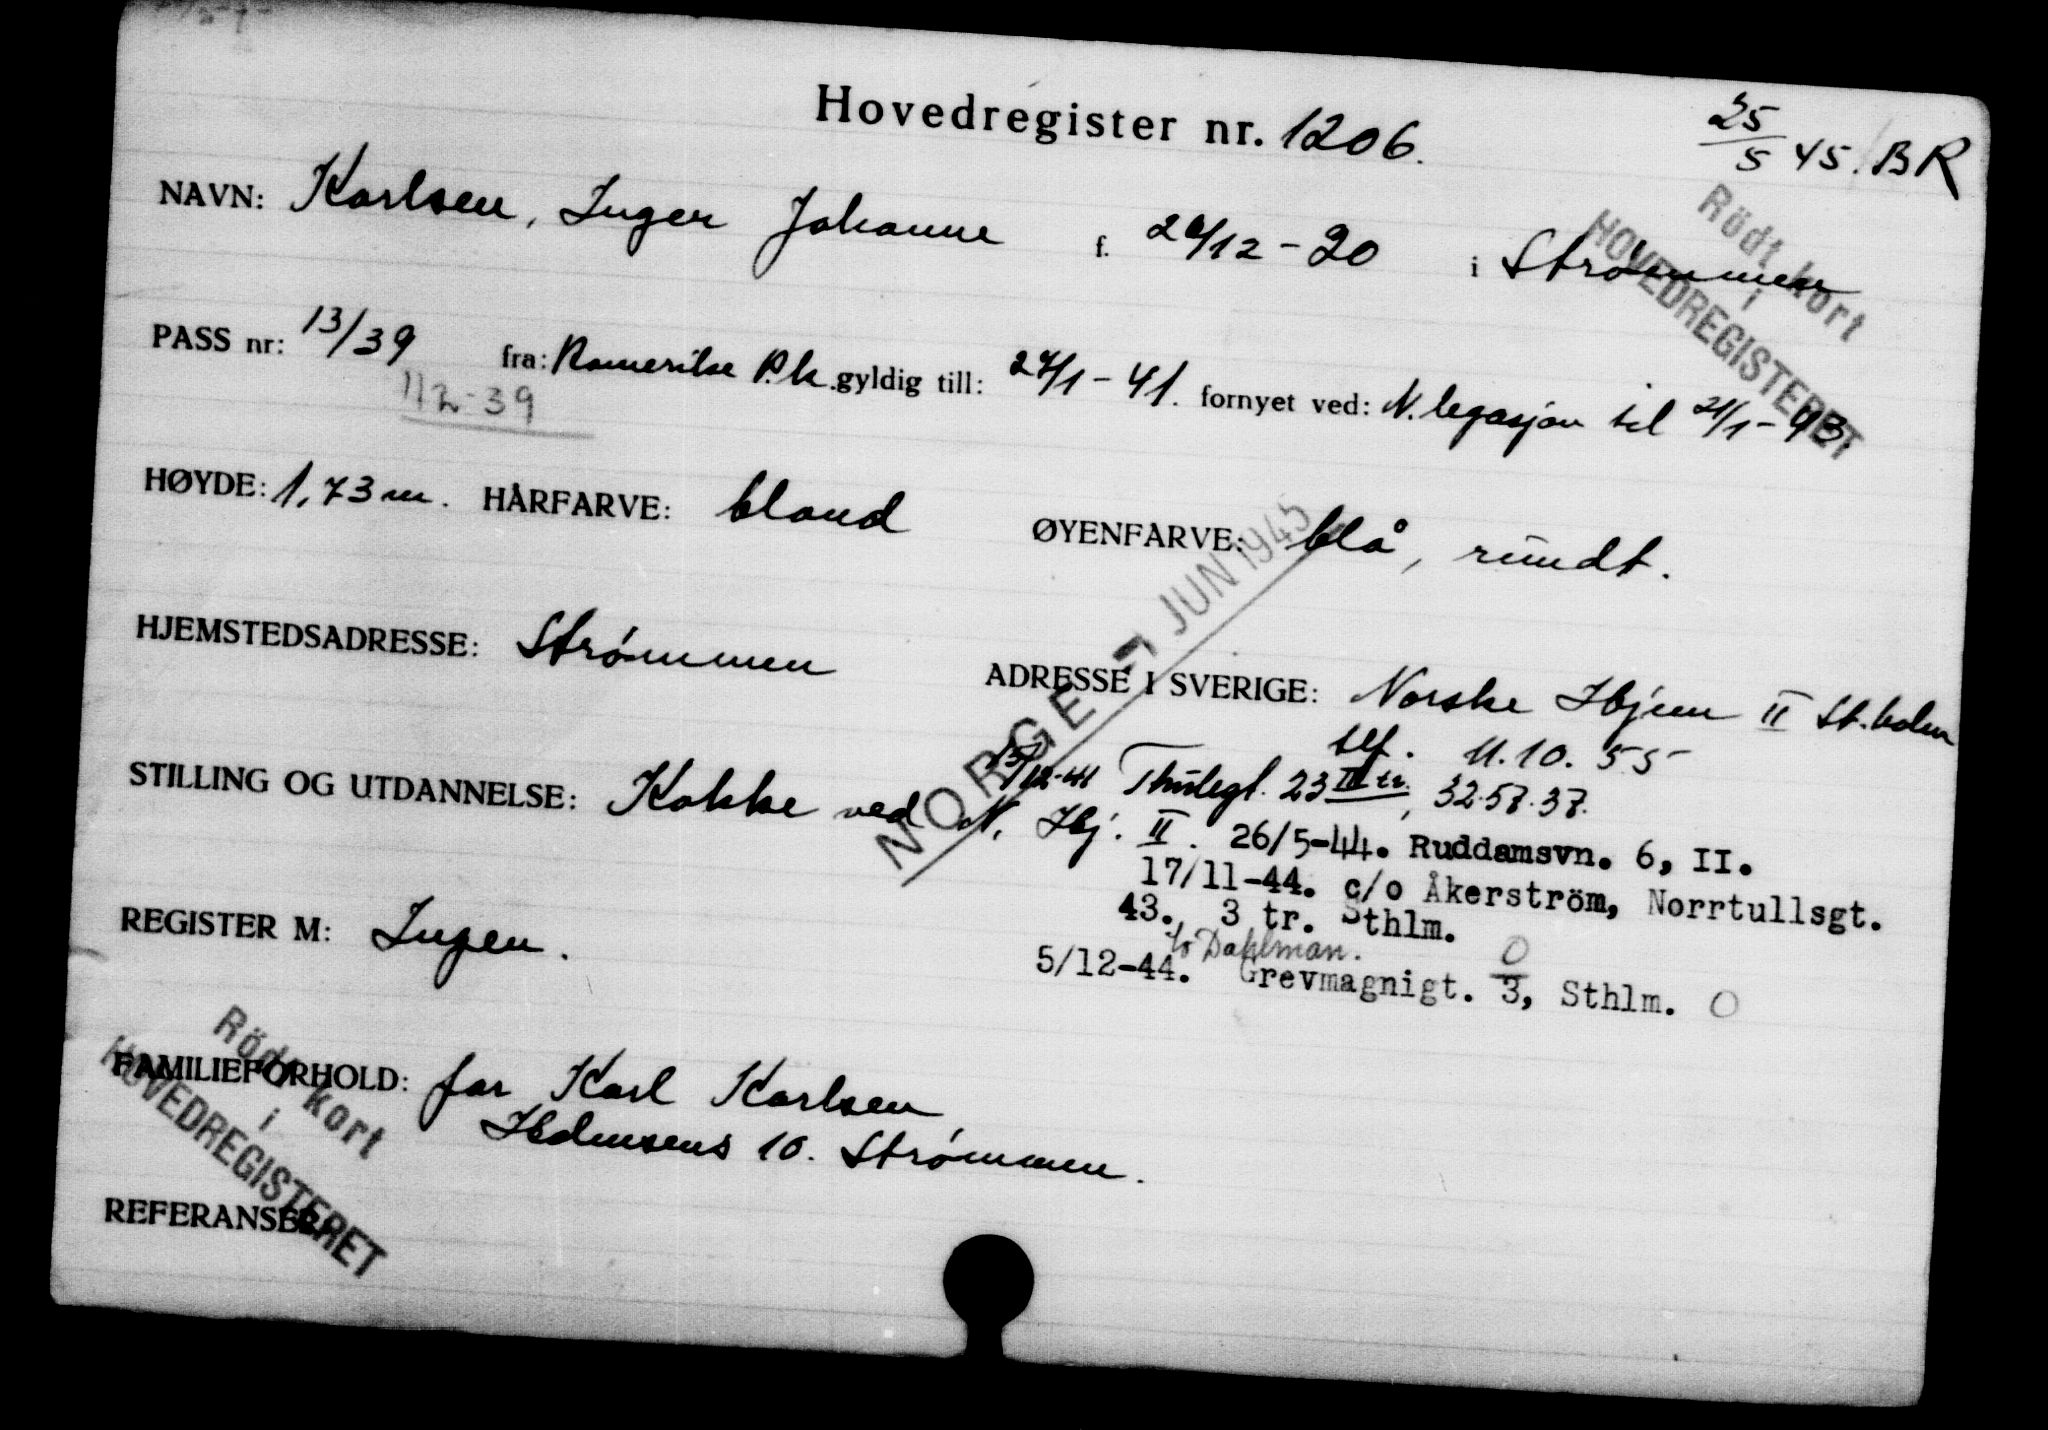 Hovedregister nr. 1206.
25/5 45. BR
NAVN: Karlsen, Inger Johanne f. /12-20 i Strømmen
Rödt kort
i
HOVEDREGISTERET
PASS nr: 13/39 fra: Romerike P.k. gyldig till: 24/1-41. fornyet ved: N. legasjon til 21/1-43.
1/2-39
HØYDE: 1,73 m. HÅRFARVE: blond ØYENFARVE: blå, rundt.
NORGE 7 JUN 1945
HJEMSTEDSADRESSE: Strømmen ADRESSE I SVERIGE: Norske Hjem II St.holm
telf. 11.10.55
/12-41 Thulegt. 23 III tr., 32.57.37.
STILLING OG UTDANNELSE: Kokke ved N. Hj. II. 26/5-44. Ruddamsvn. 6, II.
17/11-44. c/o Åkerström, Norrtullsgt.
43. 3 tr. Sthlm.
REGISTER M: Ingen.
c/o Dahlman.
5/12-44. Grevmagnigt. 0/3, Sthlm. O
FAMILIEFORHOLD: far Karl Karlsen
Holmsens 10. Strømmen.
Rödt kort
i
HOVEDREGISTERET
REFERANSER: